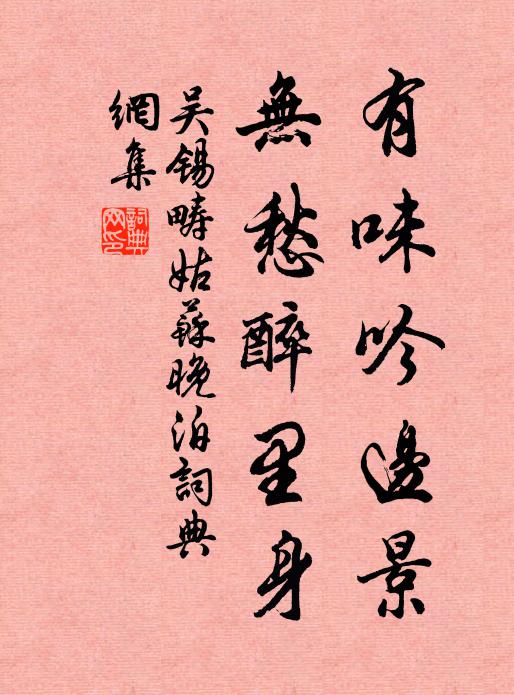 有味吟邊景
無愁醉里身
吴锡疇姑蘇晚泊詞典
網集
詞典网印